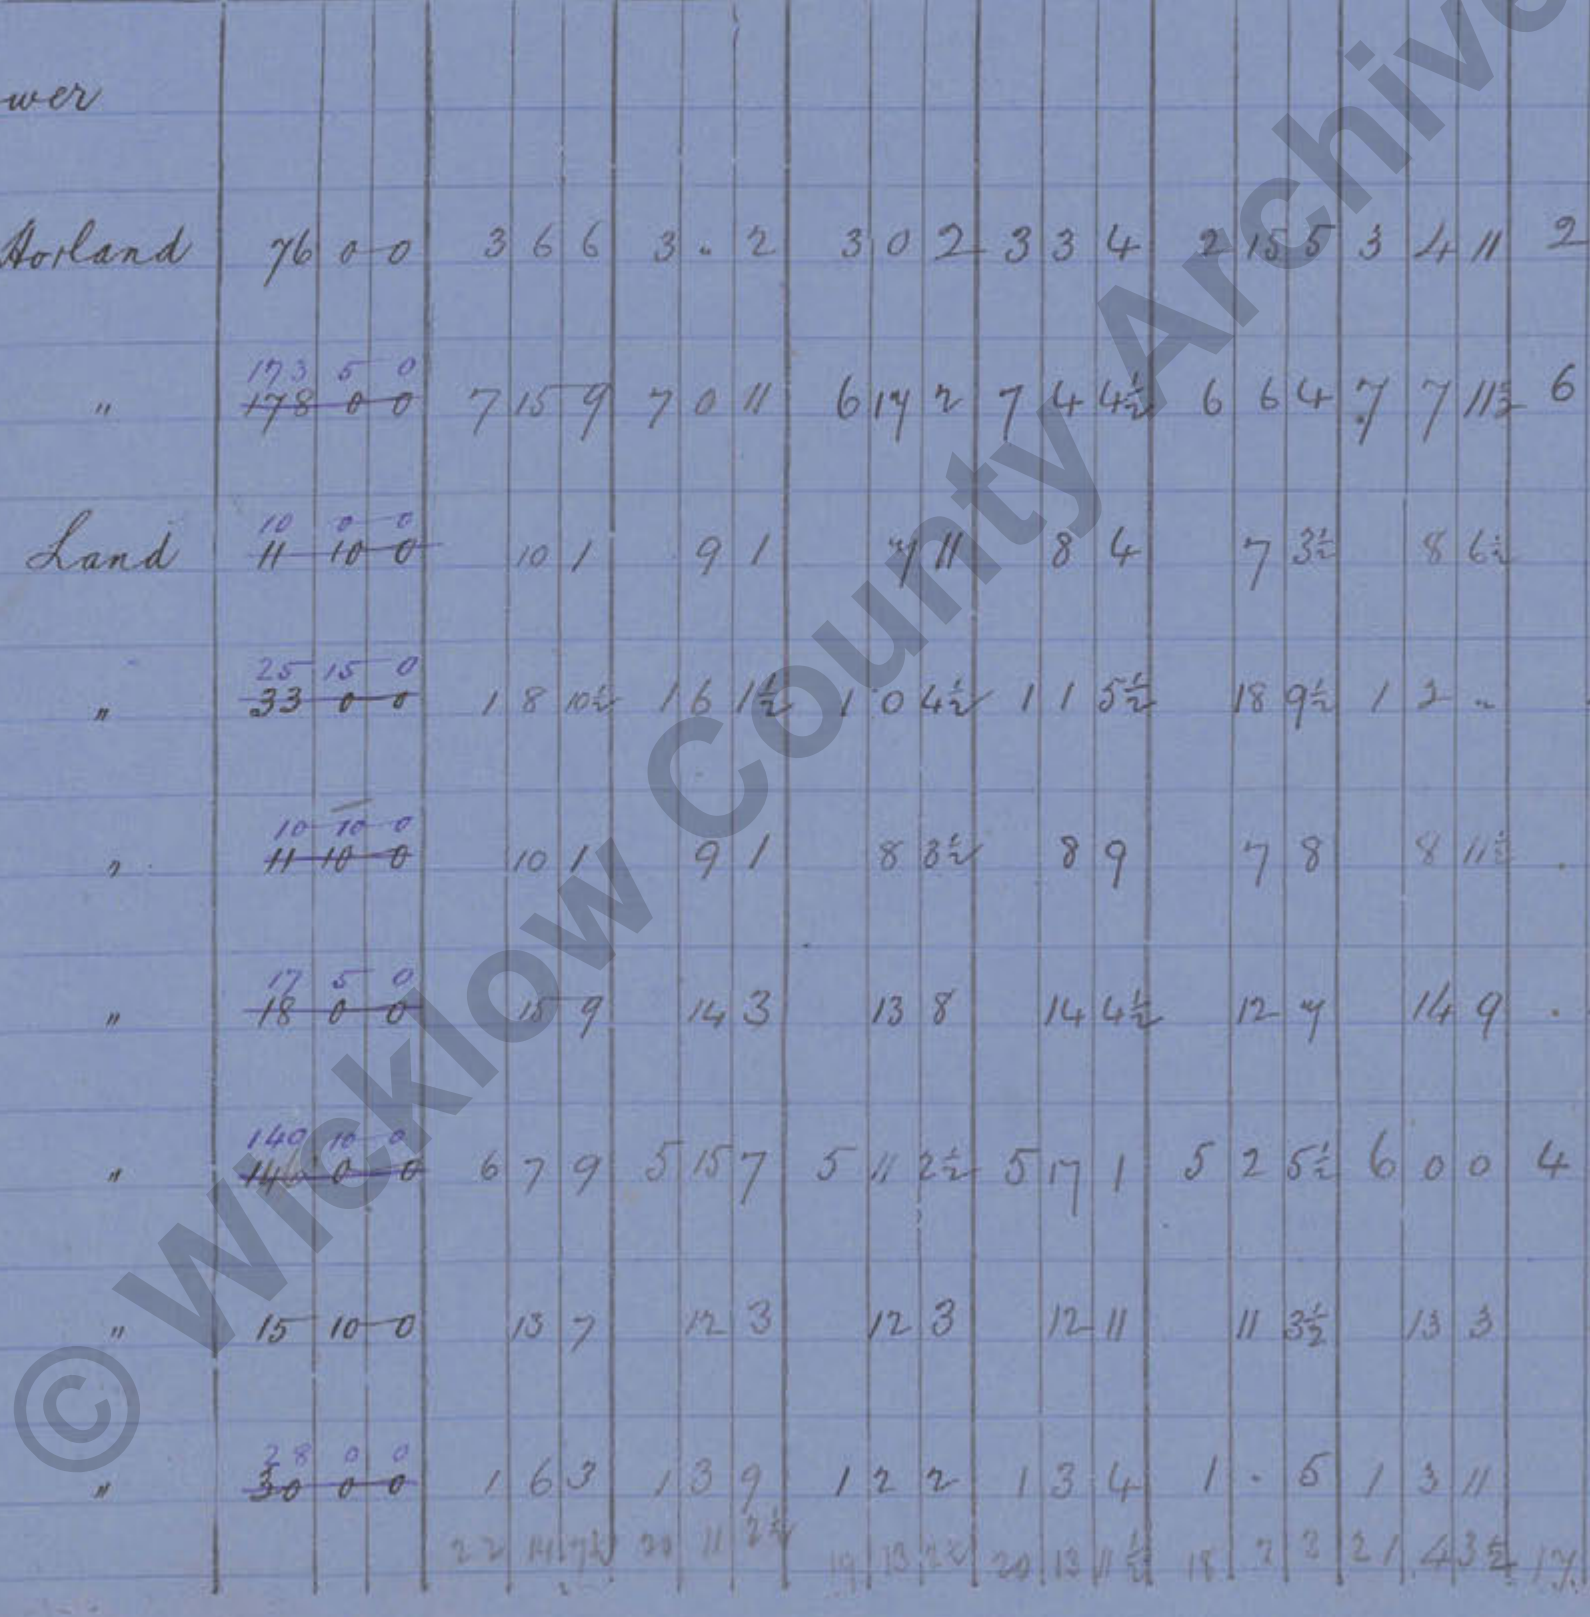 wer
H o land 76 0 0 3 6 6 3 . 2 3 0 2 3 3 4 2 15 5 3 4 11 2
173 5 0
" 178 0 0 7 15 9 7 0 11 6 17 2 7 4 4½ 6 6 4 7 7 11½ 6
10 0 0
Land 11 10 0 10 1 9 1 7 11 8 4 7 3½ 8 6½
25 15 0
" 33 0 0 1 8 10½ 1 6 1½ 1 0 4½ 1 1 5½ 18 9½ 1 2 "
10 10 0
" 11 10 0 10 1 9 1 8 3½ 8 9 7 8 8 11½
17 5 0
" 18 0 0 15 9 14 3 13 8 14 4½ 12 7 14 9
140 10 0
" 146 0 0 6 7 9 5 15 7 5 11 2½ 5 17 1 5 2 5½ 6 0 0 4
" 15 10 0 13 7 12 3 12 3 12 11 11 3½ 13 3
28 0 0
" 30 0 0 1 6 3 1 3 9 1 2 2 1 3 4 1 . 5 1 3 11
22 14 7½ 20 11 2½ 19 13 2½ 20 13 11½ 18 2 2 21 4 3½ 17
© Wicklow County Archive